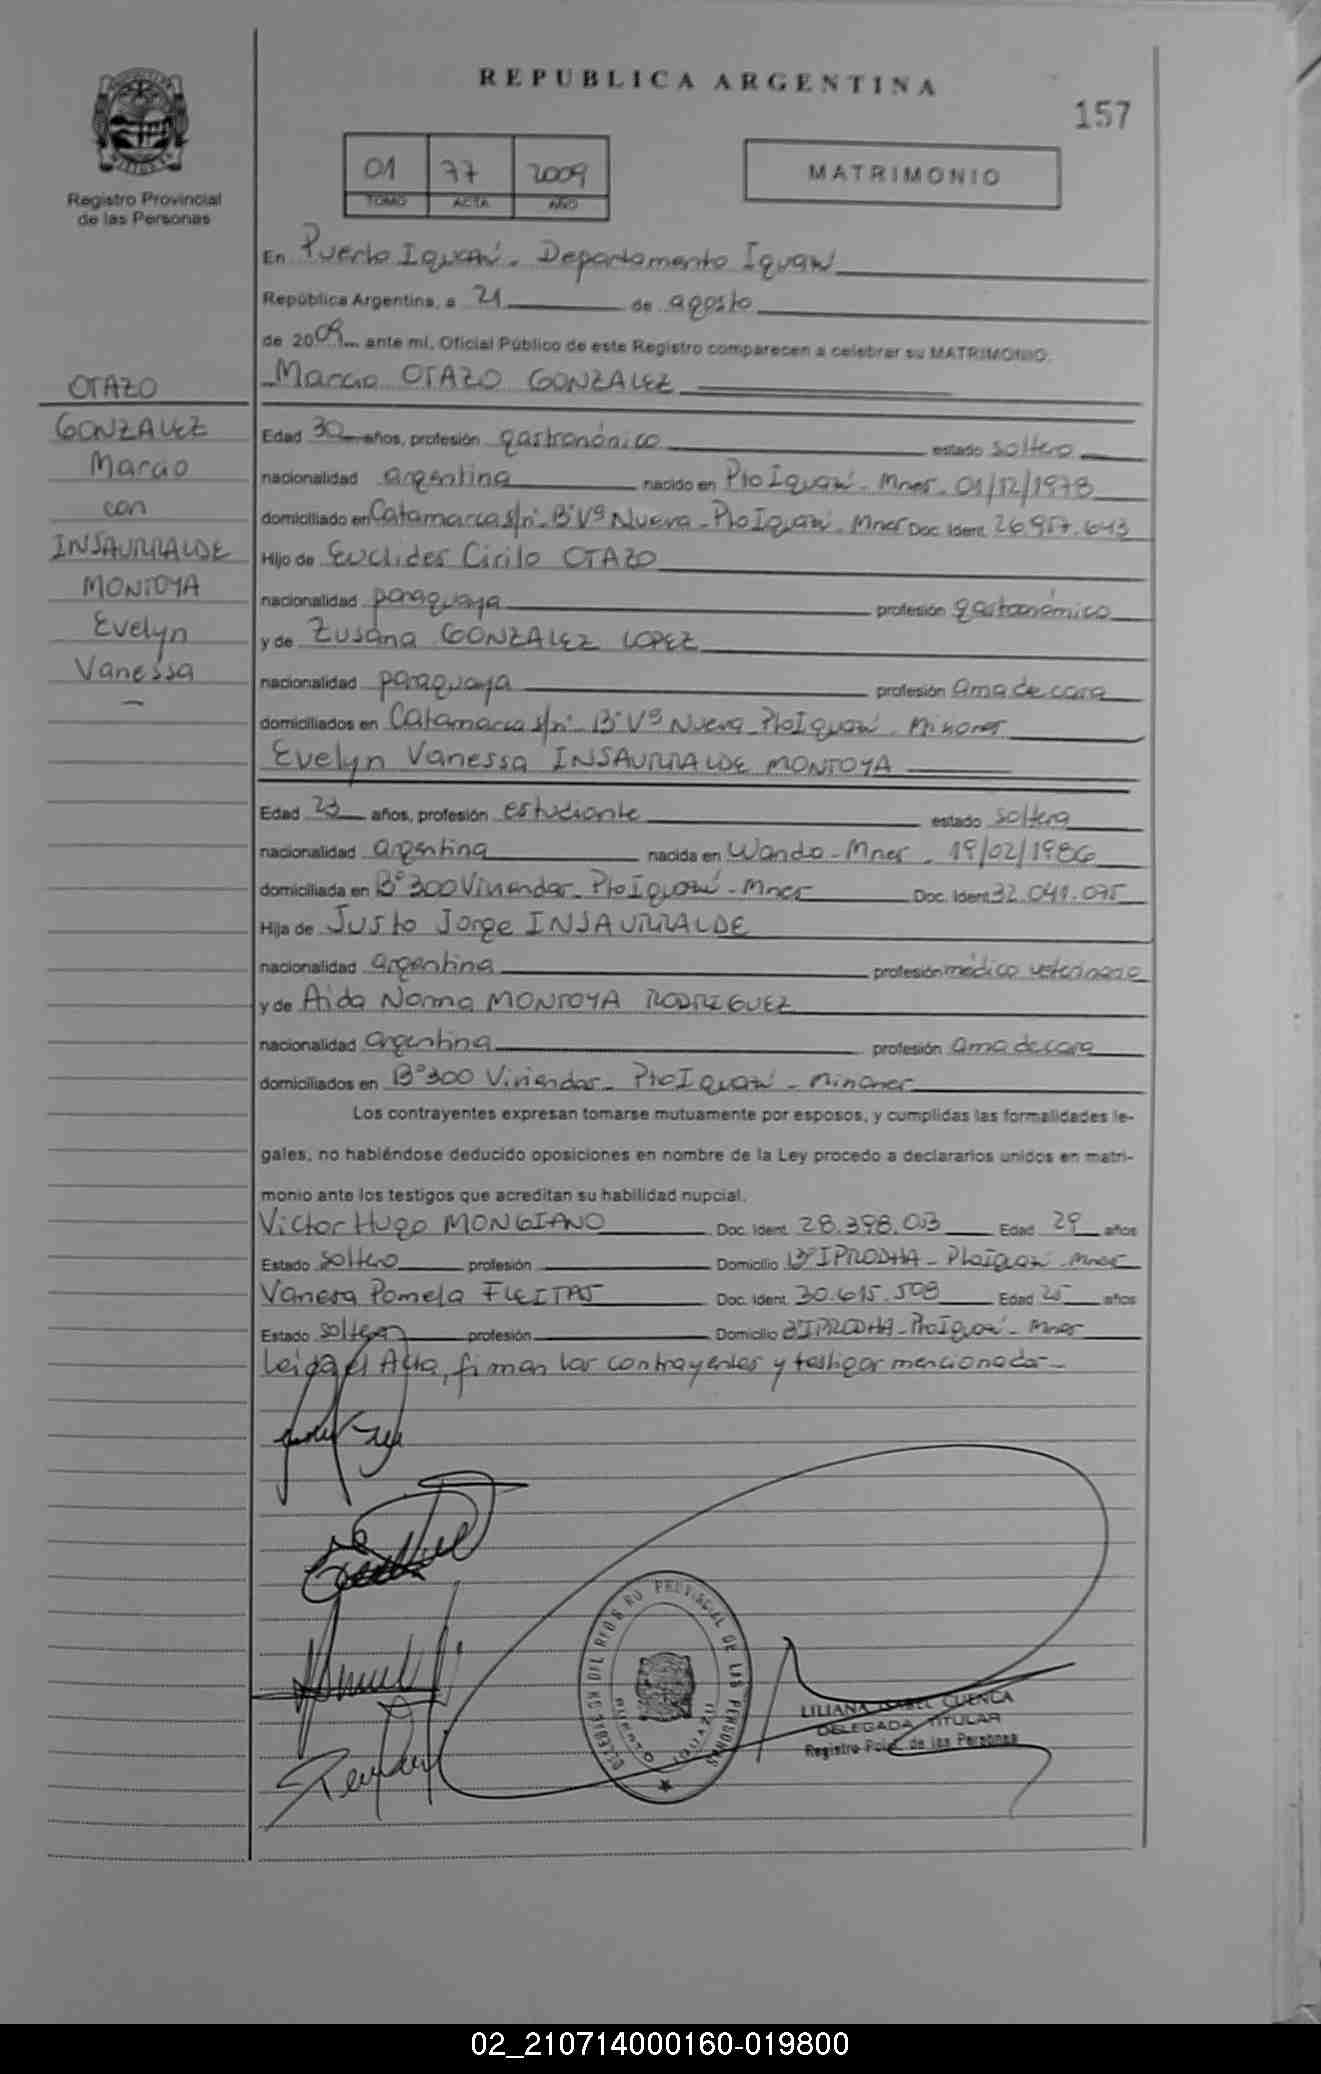 REPUBLICA ARGENTINA
157
Registro Provincial
de las Personas
01 77 2009
TOMO ACTA AÑO
MATRIMONIO
En Puerto Iguazú - Departamento Iguazú
República Argentina, a 21 de agosto
de 2009 ante mí, Oficial Público de este Registro comparecen a celebrar su MATRIMONIO.
Marcio OTAZO GONZALEZ
OTAZO
GONZALEZ
Marcio
con
INSAURRALDE
MONTOYA
Evelyn
Vanessa
Edad 30 años, profesión gastronómico estado soltero
nacionalidad argentina nacido en Pto Iguazú - Mnes - 01/12/1978
domiciliado en Catamarca s/nº - Bº Vª Nueva - Pto Iguazú - Mnes Doc. Ident. 26.957.643
Hijo de Euclides Cirilo OTAZO
nacionalidad paraguaya profesión gastronómico
y de Zusana GONZALEZ LOPEZ
nacionalidad paraguaya profesión ama de casa
domiciliados en Catamarca s/nº - Bº Vª Nueva - Pto Iguazú - Misiones
Evelyn Vanessa INSAURRALDE MONTOYA
Edad 23 años, profesión estudiante estado soltera
nacionalidad argentina nacida en Wanda - Mnes - 19/02/1986
domiciliada en Bº 300 Viviendas - Pto Iguazú - Mnes Doc. Ident. 32.041.095
Hija de Justo Jorge INSAURRALDE
nacionalidad argentina profesión médico veterinario
y de Aida Norma MONTOYA RODRIGUEZ
nacionalidad argentina profesión ama de casa
domiciliados en Bº 300 Viviendas - Pto Iguazú - Misiones
Los contrayentes expresan tomarse mutuamente por esposos, y cumplidas las formalidades le-
gales, no habiéndose deducido oposiciones en nombre de la Ley procedo a declararlos unidos en matri-
monio ante los testigos que acreditan su habilidad nupcial.
Victor Hugo MONGIANO Doc. Ident. 28.398.003 Edad 29 años
Estado soltero profesión Domicilio Bº IPRODHA - Pto Iguazú - Mnes
Vanesa Pamela FLEITAS Doc. Ident. 30.615.508 Edad 25 años
Estado soltera profesión Domicilio Bº IPRODHA - Pto Iguazú - Mnes
Leida el Acta, firman los contrayentes y testigos mencionados -
DELEGACION DEL REGISTRO PROVINCIAL DE LAS PERSONAS
PUERTO IGUAZU
LILIANA ISABEL CUENCA
DELEGADA TITULAR
Registro Pcial. de las Personas
02_210714000160-019800